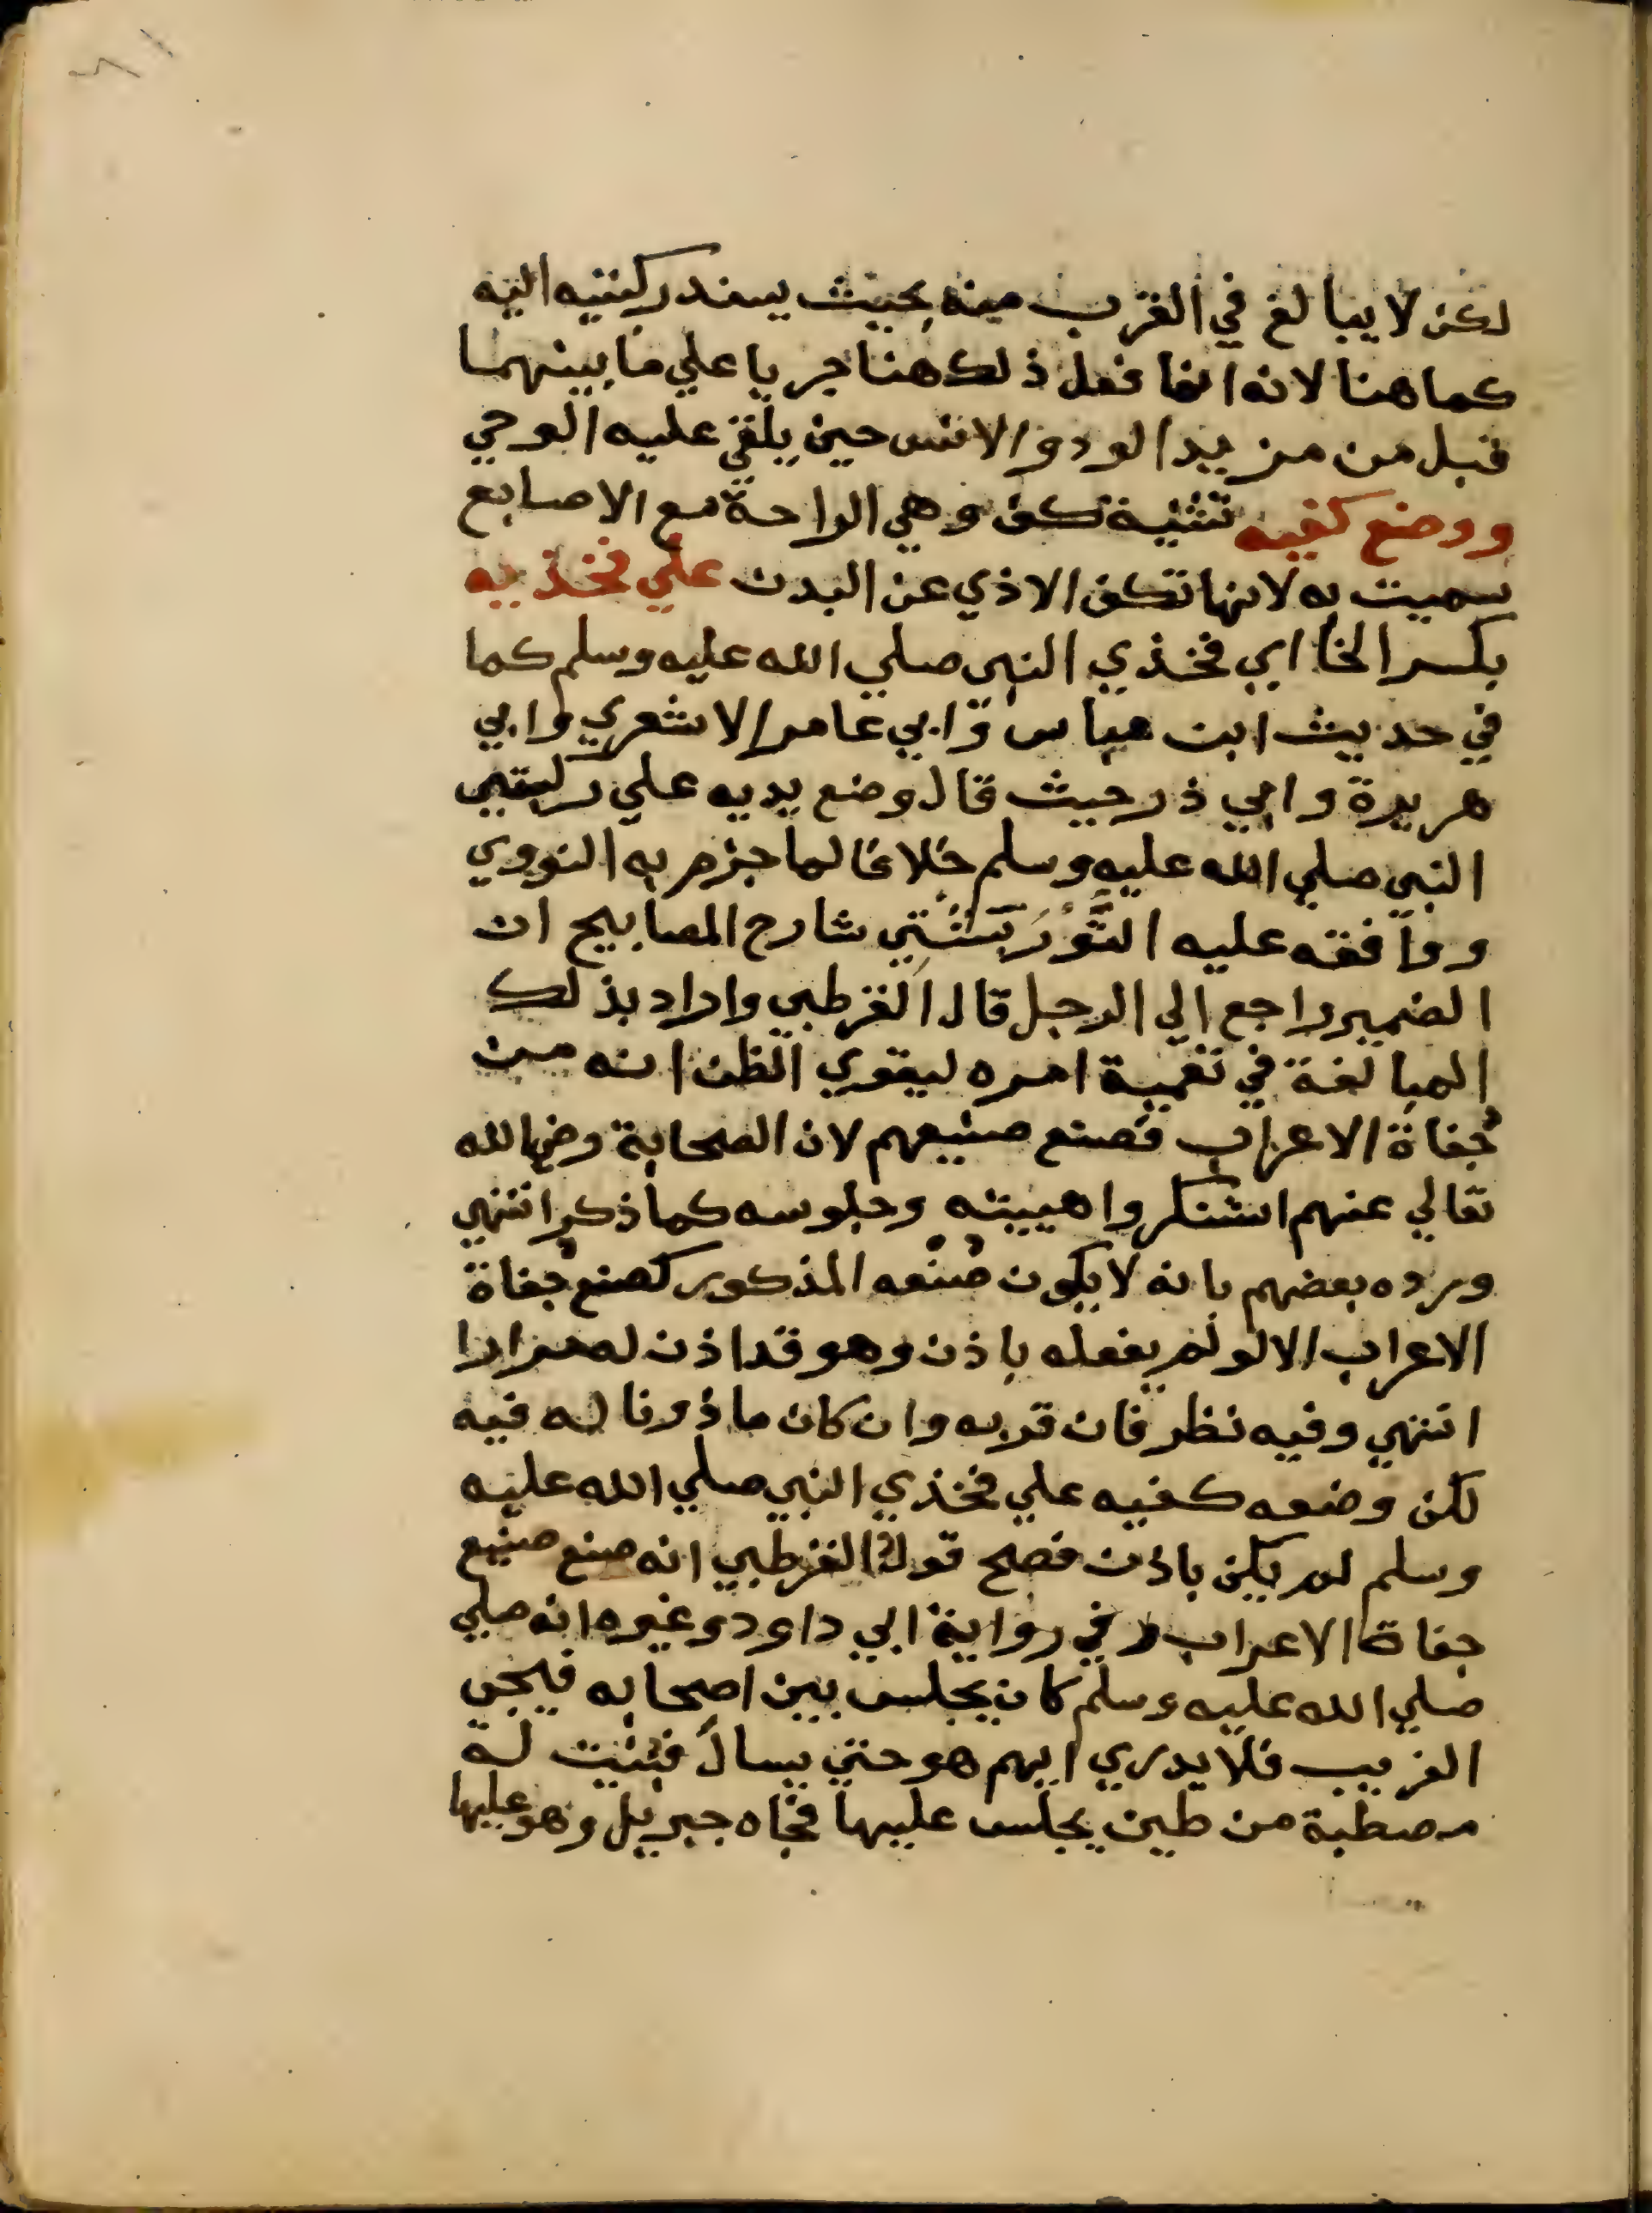 لكن لا يبالغ في القرب منه بحيث يسند ركبتيه اليه
كما هنا لانه انما فعل ذلك هنا جريا علي ما بينهما
قبل من مزيد الود والانس حين يلقي عليه الوحي
ووضع كفيه تثنية كف وهي الراحة مع الاصابع
سميت به لانها تكف الاذي عن البدن علي فخذيه
بكسر الخا اي فخذي النبي صلي الله عليه وسلم كما
في حديث ابن عباس وابي عامر الاشعري وابي
هريرة وابي ذر حيث قال وضع يديه علي ركبتي
النبي صلي الله عليه وسلم خلافا لما جزم به النووي
ووافقه عليه التُّورَبِشْتِي شارح المصابيح ان
الضمير راجع الي الرجل قال القرطبي واراد بذلك
المبالغة في تعمية امره ليقوي الظن انه من
جُفاة الاعراب فصنع صنيعهم لان الصحابة رضي الله
تعالي عنهم استنكروا هيبته وجلوسه كما ذكر انتهي
ورده بعضهم بانه لا يكون صُنْعه المذكور كصنع جُفاة
الاعراب الا لو لم يفعله باذن وهو قد اذن له مرارا
انتهي وفيه نظر فان قربه وان كان ماذونا له فيه
لكن وضعه كفيه علي فخذي النبي صلي الله عليه
وسلم لم يكن باذن فصح قول القرطبي انه صنع صنيع
جفاة الاعراب وفي رواية ابي داود وغيره انه صلي
صلي الله عليه وسلم كان يجلس بين اصحابه فيجي
الغريب فلا يدري ايهم هو حتي يسال فبنيت له
مصطبة من طين يجلس عليها فجاه جبريل وهو عليها